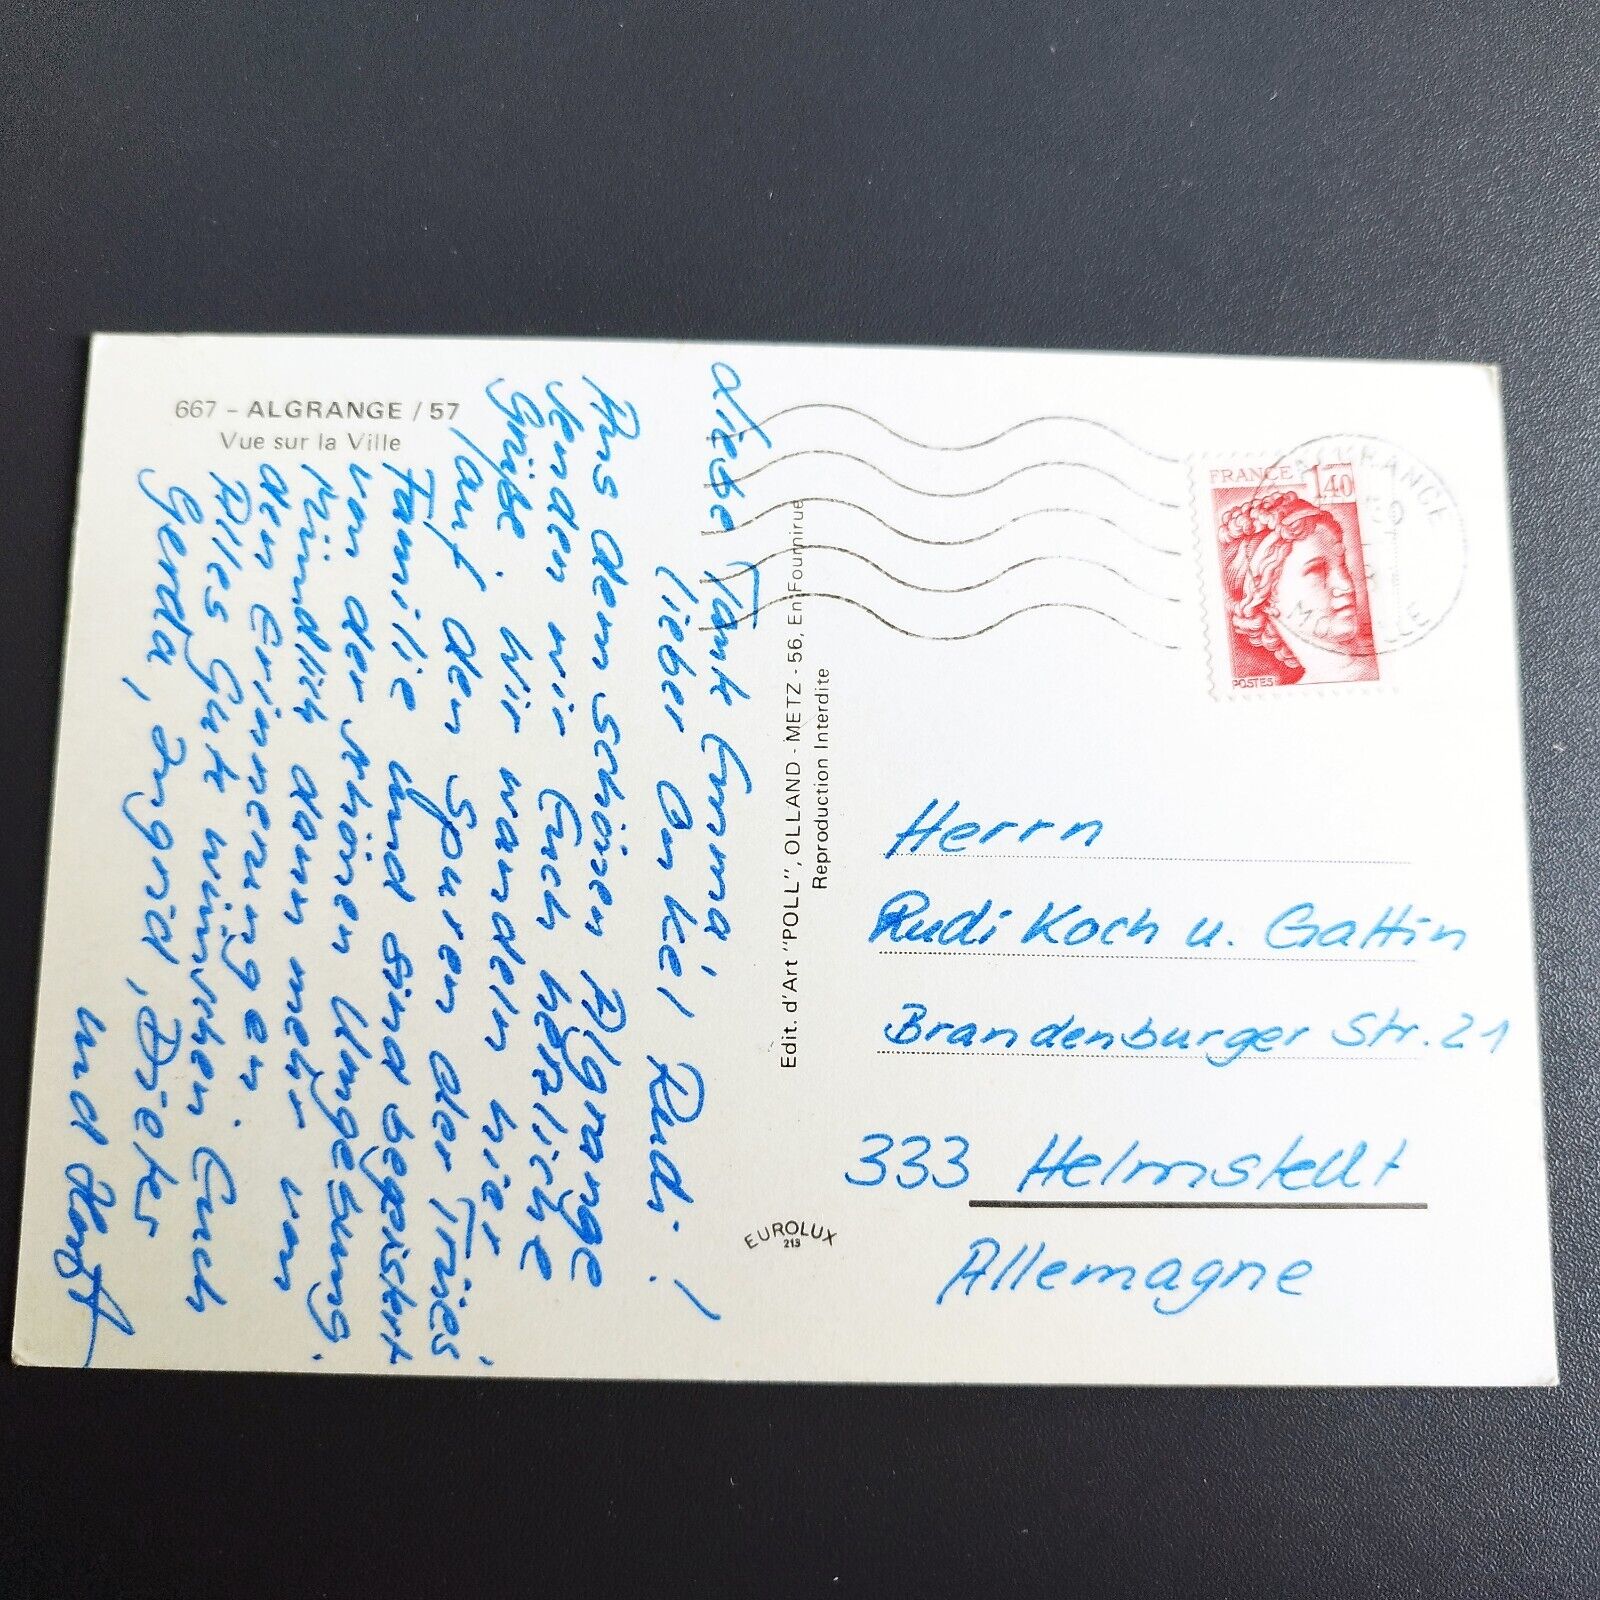 667 - ALGRANGE / 57
Vue sur la Ville
Liebe Tante Erna,
lieber Onkel Rudi!
Aus dem schönen Algrange
senden wir Euch herzliche
Grüße. Wir wandeln hier
auf den Spuren der
Familie und sind begeistert
von der schönen Umgebung.
Mündlich dann mehr von
den Erinnerungen.
Alles Gute wünschen Euch
Gerda, Ingrid,
und Horst
Edit. d'Art "POLL", OLLAND - METZ - 56, En Fournirue
Reproduction Interdite
EUROLUX
213
FRANCE 1,40
POSTES
ALGRANGE
MOSELLE
Herrn
Rudi Koch u. Gattin
Brandenburger Str. 21
333 Helmstedt
Allemagne